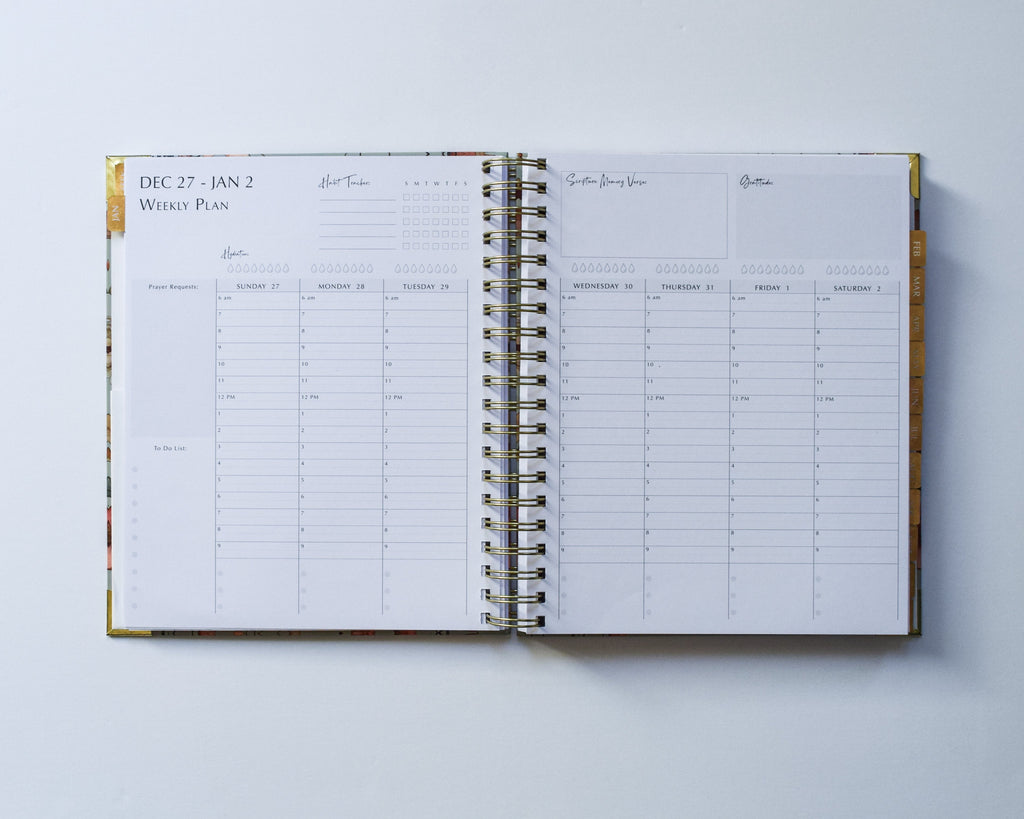 DEC 27 - JAN 2
WEEKLY PLAN
Habit Tracker:
S M T W T F S
Hydration:
Prayer Requests:
SUNDAY 27
MONDAY 28
TUESDAY 29
6 am 6 am 6 am
7 7 7
8 8 8
9 9 9
10 10 10
11 11 11
12 PM 12 PM 12 PM
1 1 1
2 2 2
3 3 3
4 4 4
5 5 5
6 6 6
7 7 7
8 8 8
9 9 9
To Do List:
JAN
Scripture Memory Verse:
Gratitude:
WEDNESDAY 30
THURSDAY 31
FRIDAY 1
SATURDAY 2
6 am 6 am 6 am 6 am
7 7 7 7
8 8 8 8
9 9 9 9
10 10 10 10
11 11 11 11
12 PM 12 PM 12 PM 12 PM
1 1 1 1
2 2 2 2
3 3 3 3
4 4 4 4
5 5 5 5
6 6 6 6
7 7 7 7
8 8 8 8
9 9 9 9
FEB
MAR
APR
JUN